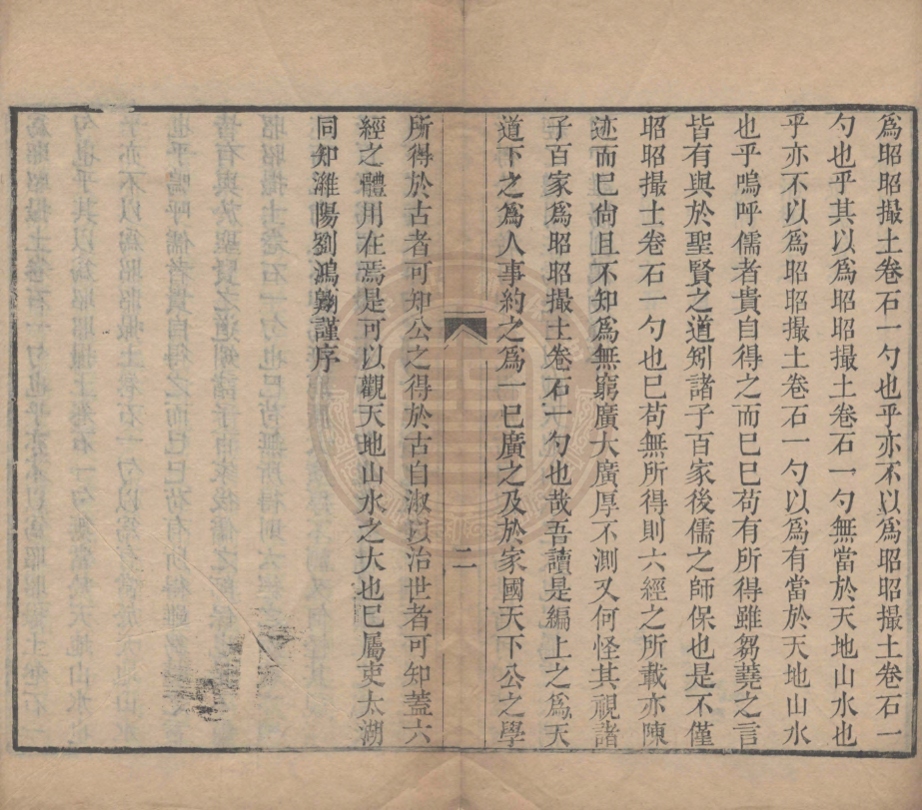 爲昭昭撮土卷石一勺也乎亦不以爲昭昭撮土卷石一
勺也乎其以爲昭昭撮土卷石一勺無當於天地山水也
乎亦不以爲昭昭撮土卷石一勺以爲有當於天地山水
也乎嗚呼儒者貴自得之而已已苟有所得雖芻蕘之言
皆有與於聖賢之道矧諸子百家後儒之師保也是不僅
昭昭撮土卷石一勺也已苟無所得則六經之所載亦陳
迹而已尙且不知爲無窮廣大廣厚不測又何怪其視諸
子百家爲昭昭撮土卷石一勺也哉吾讀是編上之爲天
道下之爲人事約之爲一已廣之及於家國天下公之學
二
所得於古者可知公之得於古自淑以治世者可知蓋六
經之體用在焉是可以觀天地山水之大也已屬吏太湖
同知濰陽劉鴻翱謹序